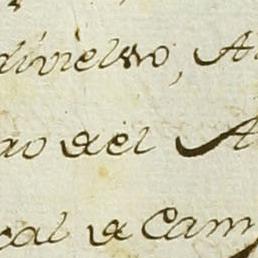 divielso, A
ao del A
cal de Cam